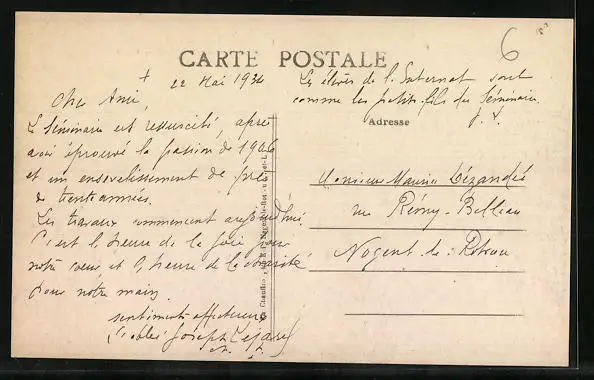 6
CARTE POSTALE
+
22 Mai 1934
Cher Ami,
Le Séminaire est ressuscité, après
avoir éprouvé la passion de 1906
et un ensevelissement de près
de trente années.
Les travaux commencent aujourd'hui.
C'est l'heure de la joie pour
notre cœur et l'heure de la charité
pour notre main.
sentiments affectueux
L'abbé Joseph
Les élèves de l'Internat sont
comme les petits-fils du Séminaire.
Adresse
Monsieur Maurice Dézandé
rue Rémy-Belleau
Nogent-le-Rotrou